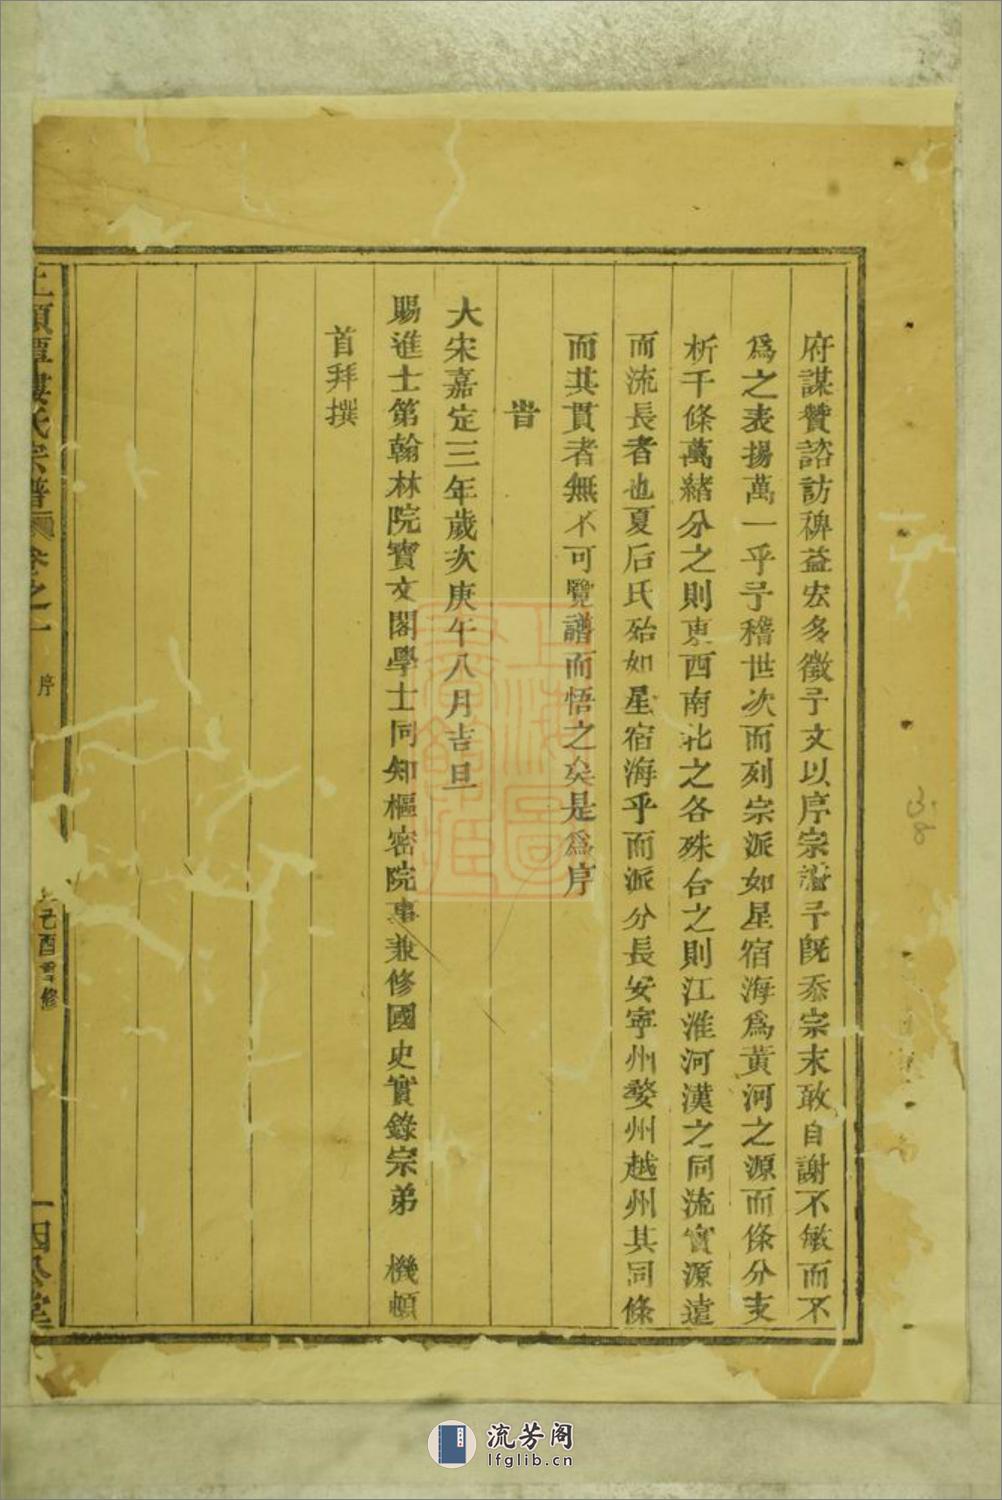 府謀贊諮訪裨益宏多徵予文以序宗譜予既忝宗末敢自謝不敏而不
爲之表揚萬一乎予稽世次而列宗派如星宿海爲黃河之源而條分支
析千條萬緒分之則東西南北之各殊合之則江淮河漢之同流實源遠
而流長者也夏后氏殆如星宿海乎而派分長安寧州婺州越州其同條
而其貫者無不可覽譜而悟之矣是爲序
旹
大宋嘉定三年歲次庚午八月吉旦
賜進士第翰林院寶文閣學士同知樞密院事兼修國史實錄宗弟 機頓
首拜撰
婁氏宗譜 卷之一 序 己酉重修
上海圖書館藏
38
流芳阁
lfglib.cn